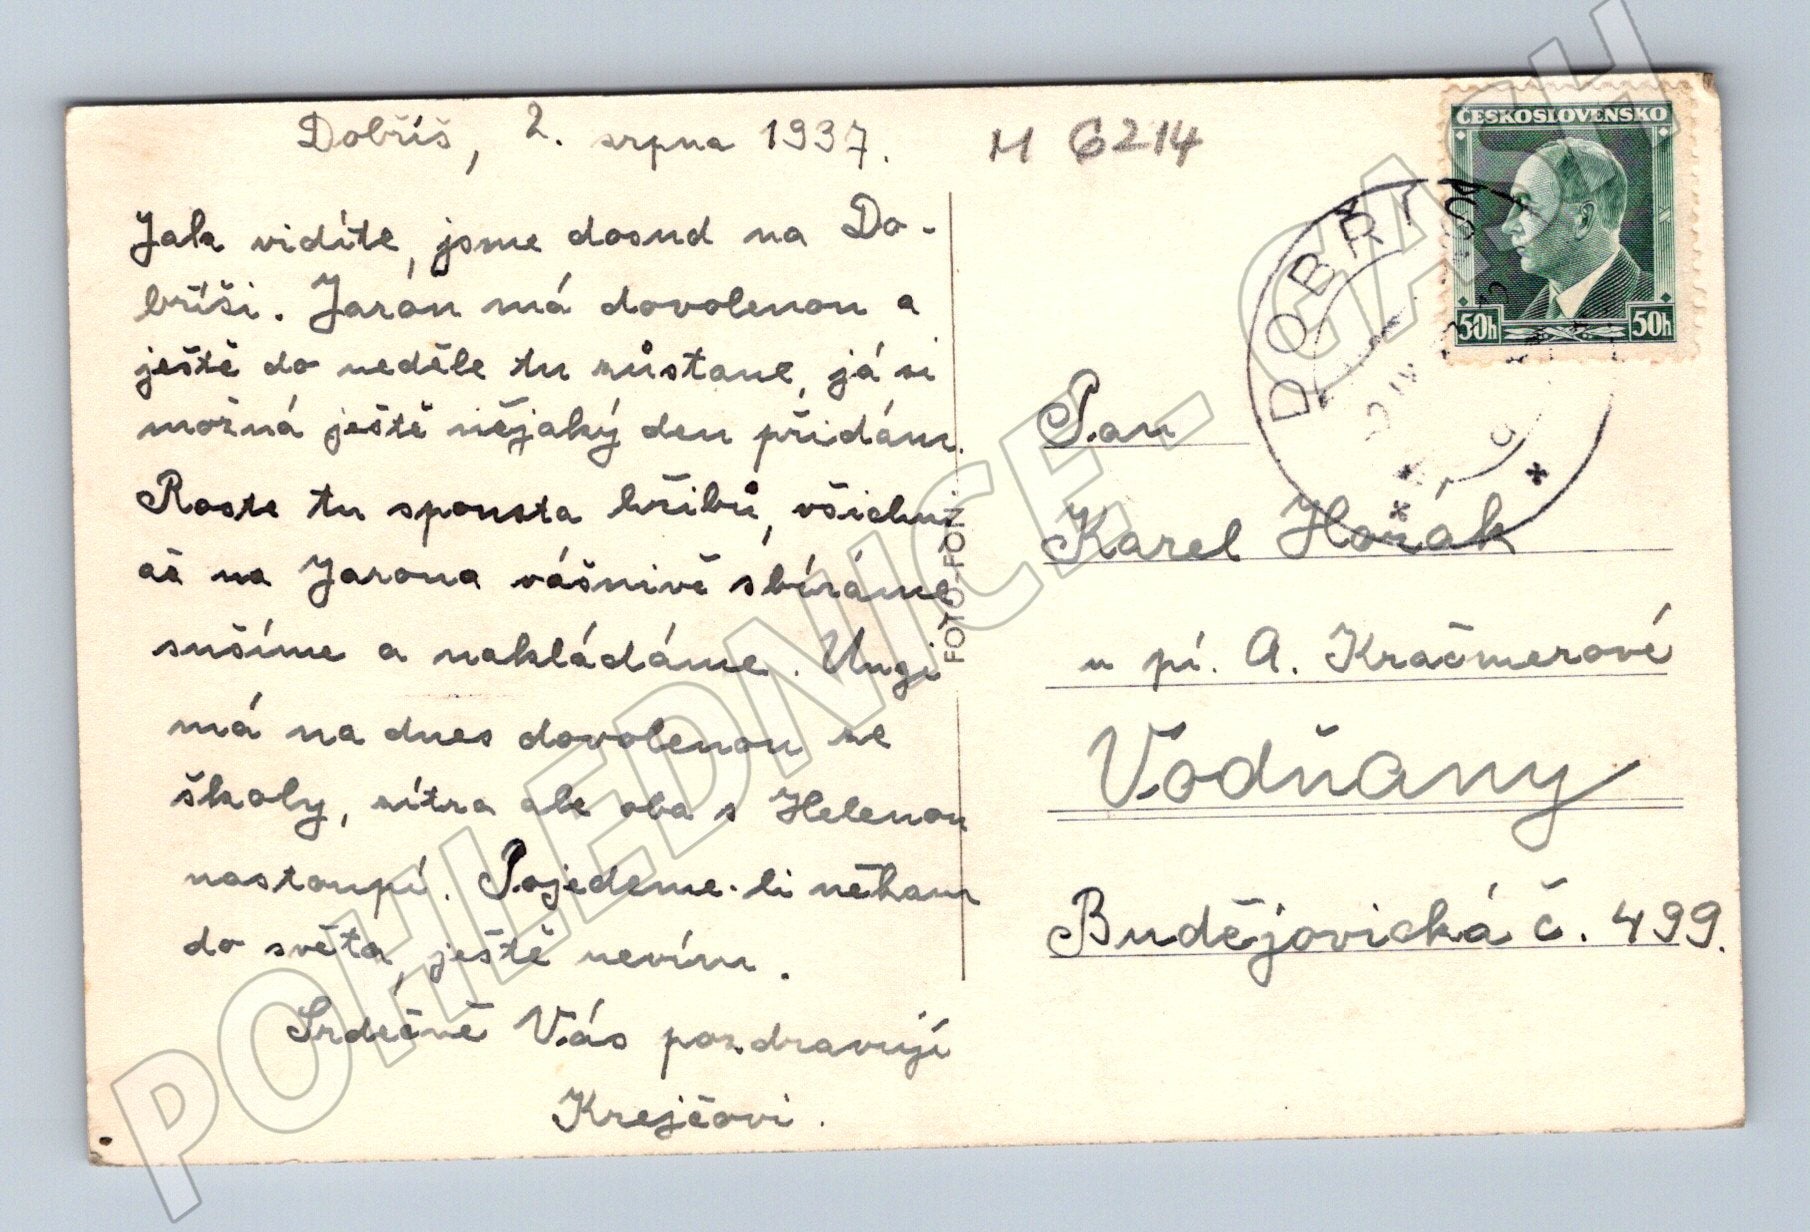 Dobříš, 2. srpna 1937.
M 6214
ČESKOSLOVENSKO
50h 50h
Jak vidíte, jsme dosud na Do-
bříši. Jarón má dovolenou a
ještě do neděle tu zůstane, já si
možná ještě nějaký den přidám.
Roste tu spousta hřibů, všichni
až na Jarona vášnivě sbíráme
sušíme a nakládáme. Ungi
má na dnes dovolenou ze
školy, zítra ale oba s Helenou
nastoupí. Pojedeme-li někam
do světa, ještě nevím.
Srdečně Vás pozdravují
Krejčovi.
FOTO-FON
DOBŘÍ
Pan
Karel Horák
u pí. A. Kračmerové
Vodňany
Budějovická č. 499.
POHLEDNICE - CASH